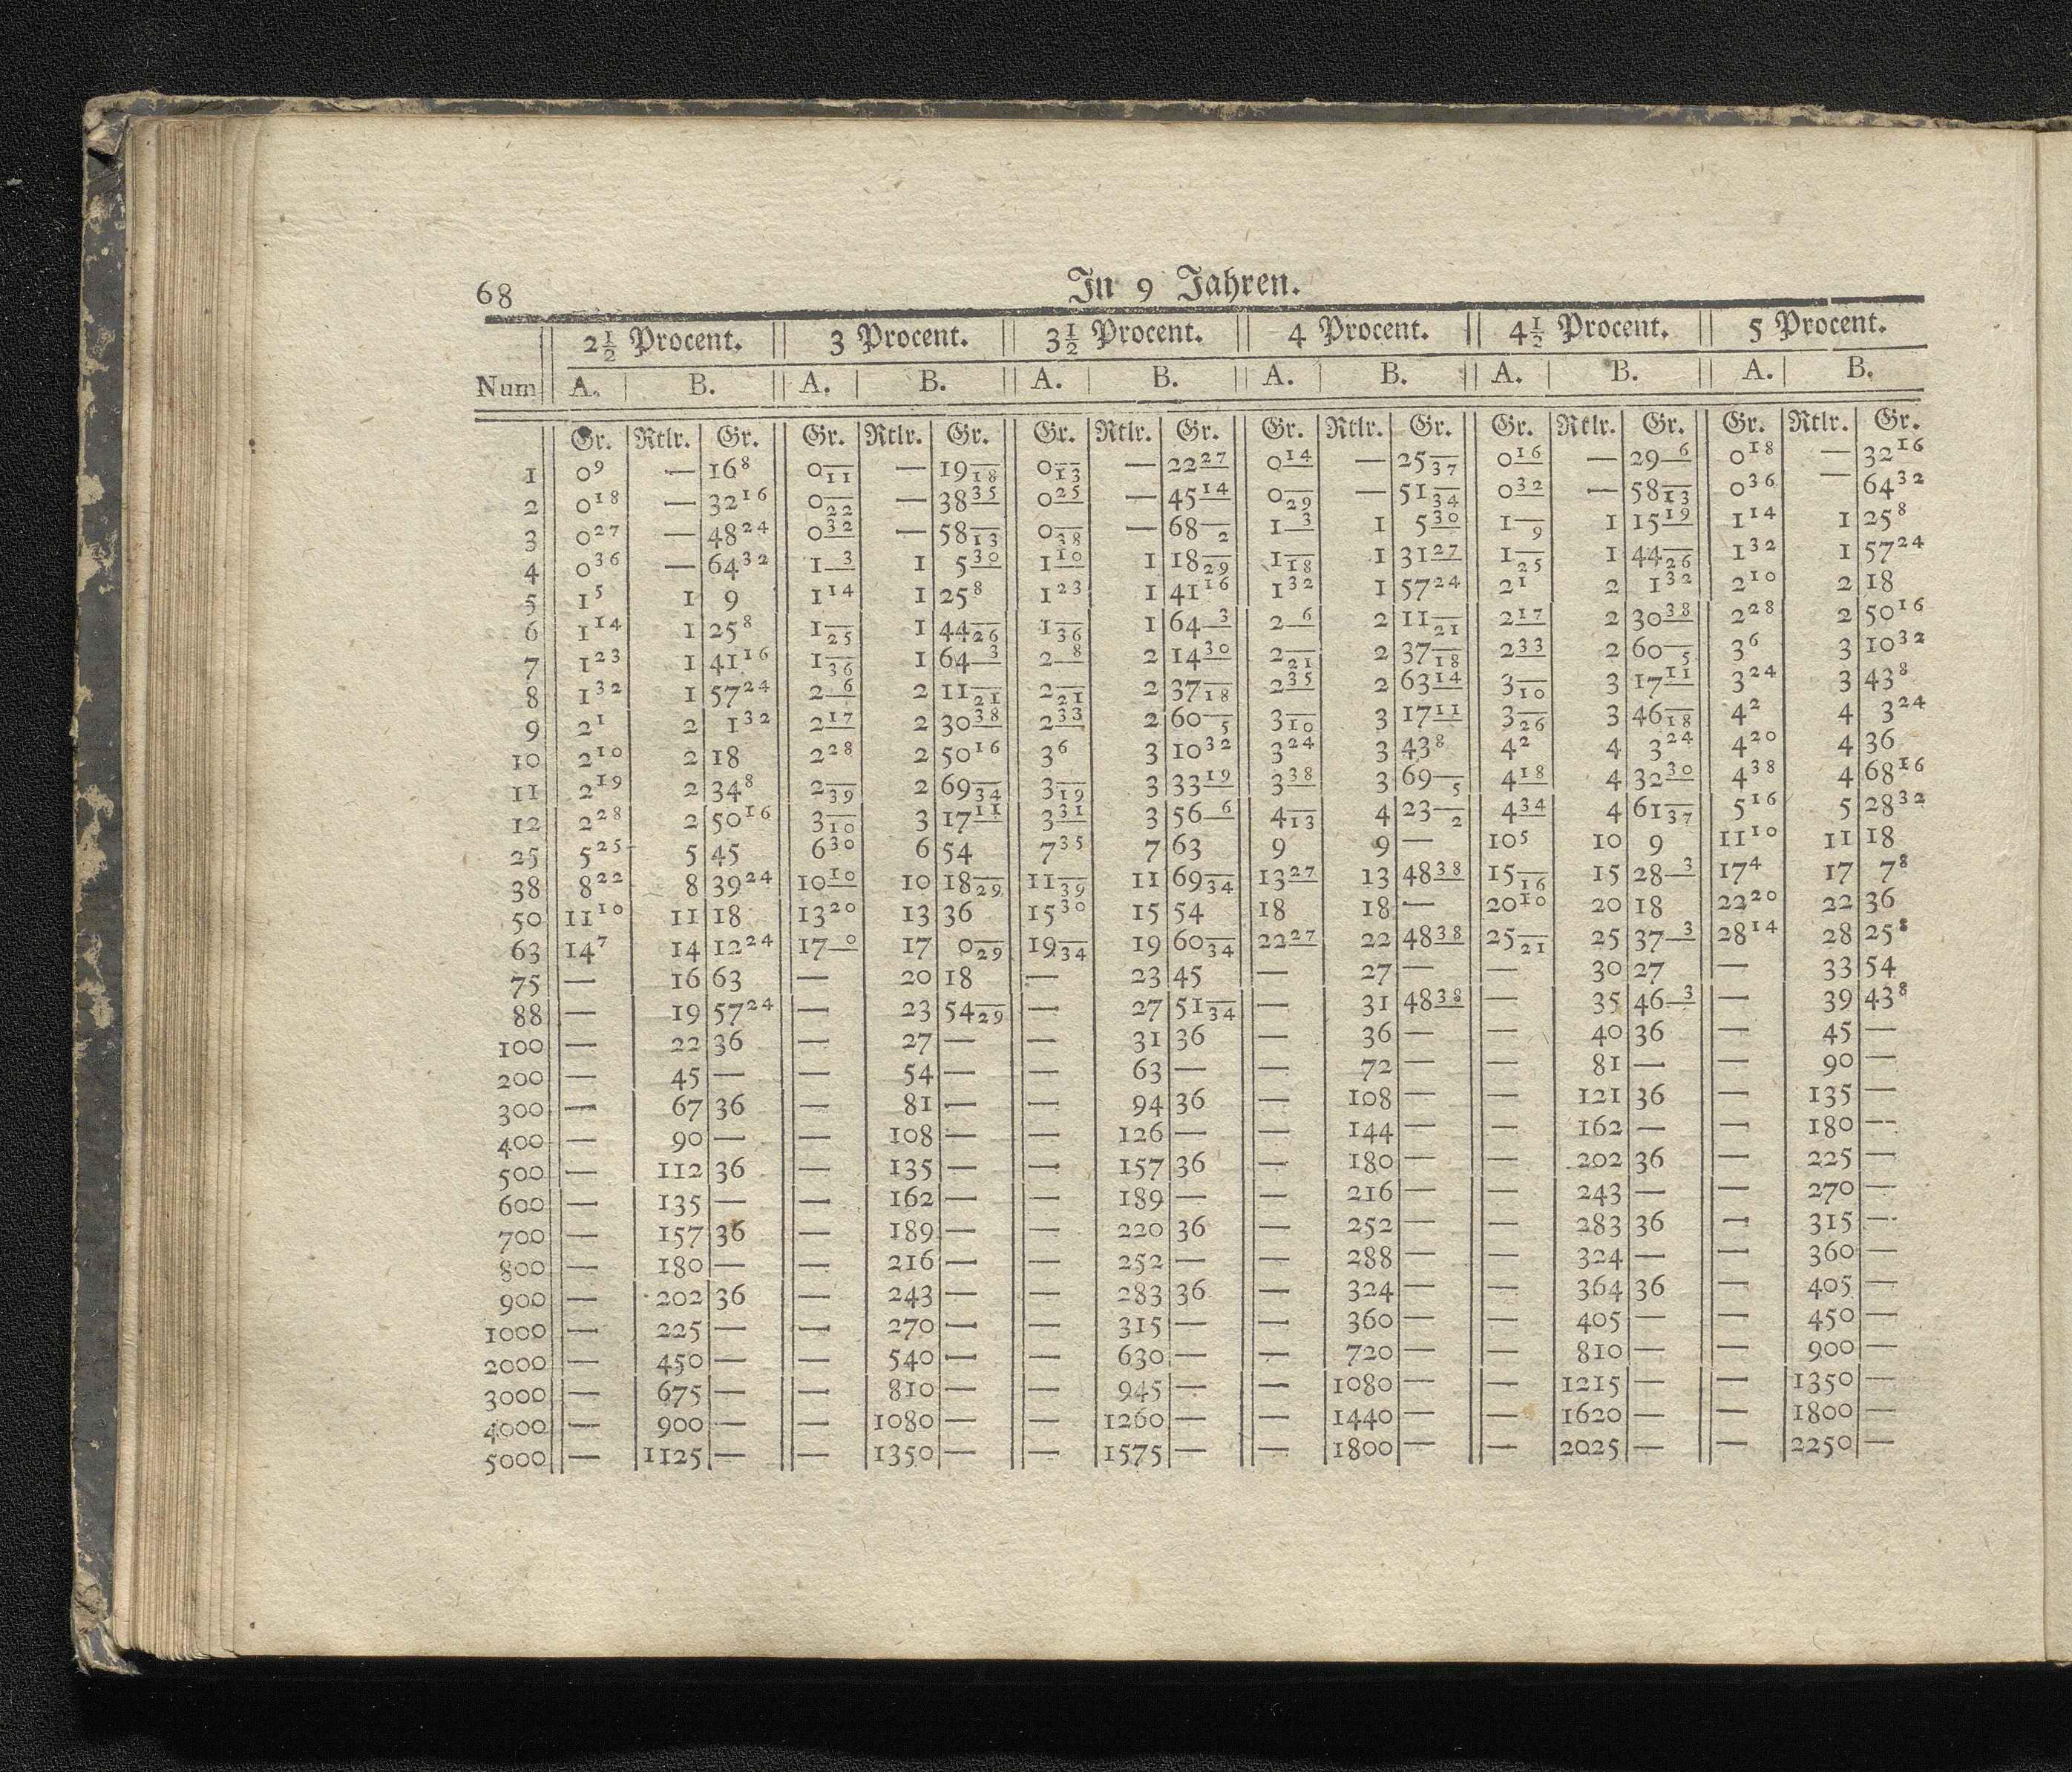 68 In 9 Jahren.
2½ Procent. 3 Procent. 3½ Procent. 4 Procent. 4½ Procent. 5 Procent.
Num A. B. A. B. A. B. A. B. A. B. A. B.
Gr. Rtlr. Gr. Gr. Rtlr. Gr. Gr. Rtlr. Gr. Gr. Rtlr. Gr. Gr. Rtlr. Gr. Gr. Rtlr. Gr.
1 0⁹ — 16⁸ 0₁₁ — 19₁₈ 0₁₃ — 22²⁷ 0¹⁴ — 25₃₇ 0¹⁶ — 29⁶ 0¹⁸ — 32¹⁶
2 0¹⁸ — 32¹⁶ 0₂₂ — 38³⁵ 0²⁵ — 45¹⁴ 0₂₉ — 51₃₄ 0³² — 58₁₃ 0³⁶ — 64³²
3 0²⁷ — 48²⁴ 0³² — 58₁₃ 0₃₈ — 68₂ 1³ 1 5³⁰ 1₉ 1 15¹⁹ 1¹⁴ 1 25⁸
4 0³⁶ — 64³² 1³ 1 5³⁰ 1¹⁰ 1 18₂₉ 1₁₈ 1 31²⁷ 1₂₅ 1 44₂₆ 1³² 1 57²⁴
5 1⁵ 1 9 1¹⁴ 1 25⁸ 1²³ 1 41¹⁶ 1³² 1 57²⁴ 2¹ 2 1³² 2¹⁰ 2 18
6 1¹⁴ 1 25⁸ 1₂₅ 1 44₂₆ 1₃₆ 1 64³ 2⁶ 2 11₂₁ 2¹⁷ 2 30³⁸ 2²⁸ 2 50¹⁶
7 1²³ 1 41¹⁶ 1₃₆ 1 64³ 2⁸ 2 14³⁰ 2₂₁ 2 37₁₈ 2³³ 2 60₅ 3⁶ 3 10³²
8 1³² 1 57²⁴ 2⁶ 2 11₂₁ 2₂₁ 2 37₁₈ 2³⁵ 2 63¹⁴ 3₁₀ 3 17¹¹ 3²⁴ 3 43⁸
9 2¹ 2 1³² 2¹⁷ 2 30³⁸ 2³³ 2 60₅ 3₁₀ 3 17¹¹ 3₂₆ 3 46₁₈ 4² 4 3²⁴
10 2¹⁰ 2 18 2²⁸ 2 50¹⁶ 3⁶ 3 10³² 3²⁴ 3 43⁸ 4² 4 3²⁴ 4²⁰ 4 36
11 2¹⁹ 2 34⁸ 2₃₉ 2 69₃₄ 3₁₉ 3 33¹⁹ 3³⁸ 3 69₅ 4¹⁸ 4 32³⁰ 4³⁸ 4 68¹⁶
12 2²⁸ 2 50¹⁶ 3₁₀ 3 17¹¹ 3³¹ 3 56⁶ 4₁₃ 4 23₂ 4³⁴ 4 61₃₇ 5¹⁶ 5 28³²
25 5²⁵ 5 45 6³⁰ 6 54 7³⁵ 7 63 9 9 — 10⁵ 10 9 11¹⁰ 11 18
38 8²² 8 39²⁴ 10¹⁰ 10 18₂₉ 11₃₉ 11 69₃₄ 13²⁷ 13 48³⁸ 15₁₆ 15 28³ 17⁴ 17 7⁸
50 11¹⁰ 11 18 13²⁰ 13 36 15³⁰ 15 54 18 18 — 20¹⁰ 20 18 22²⁰ 22 36
63 14⁷ 14 12²⁴ 17⁰ 17 0₂₉ 19₃₄ 19 60₃₄ 22²⁷ 22 48³⁸ 25₂₁ 25 37³ 28¹⁴ 28 25⁸
75 — 16 63 — 20 18 — 23 45 — 27 — — 30 27 — 33 54
88 — 19 57²⁴ — 23 54₂₉ — 27 51₃₄ — 31 48³⁸ — 35 46³ — 39 43⁸
100 — 22 36 — 27 — — 31 36 — 36 — — 40 36 — 45 —
200 — 45 — — 54 — — 63 — — 72 — — 81 — — 90 —
300 — 67 36 — 81 — — 94 36 — 108 — — 121 36 — 135 —
400 — 90 — — 108 — — 126 — — 144 — — 162 — — 180 —
500 — 112 36 — 135 — — 157 36 — 180 — — 202 36 — 225 —
600 — 135 — — 162 — — 189 — — 216 — — 243 — — 270 —
700 — 157 36 — 189 — — 220 36 — 252 — — 283 36 — 315 —
800 — 180 — — 216 — — 252 — — 288 — — 324 — — 360 —
900 — 202 36 — 243 — — 283 36 — 324 — — 364 36 — 405 —
1000 — 225 — — 270 — — 315 — — 360 — — 405 — — 450 —
2000 — 450 — — 540 — — 630 — — 720 — — 810 — — 900 —
3000 — 675 — — 810 — — 945 — — 1080 — — 1215 — — 1350 —
4000 — 900 — — 1080 — — 1260 — — 1440 — — 1620 — — 1800 —
5000 — 1125 — — 1350 — — 1575 — — 1800 — — 2025 — — 2250 —